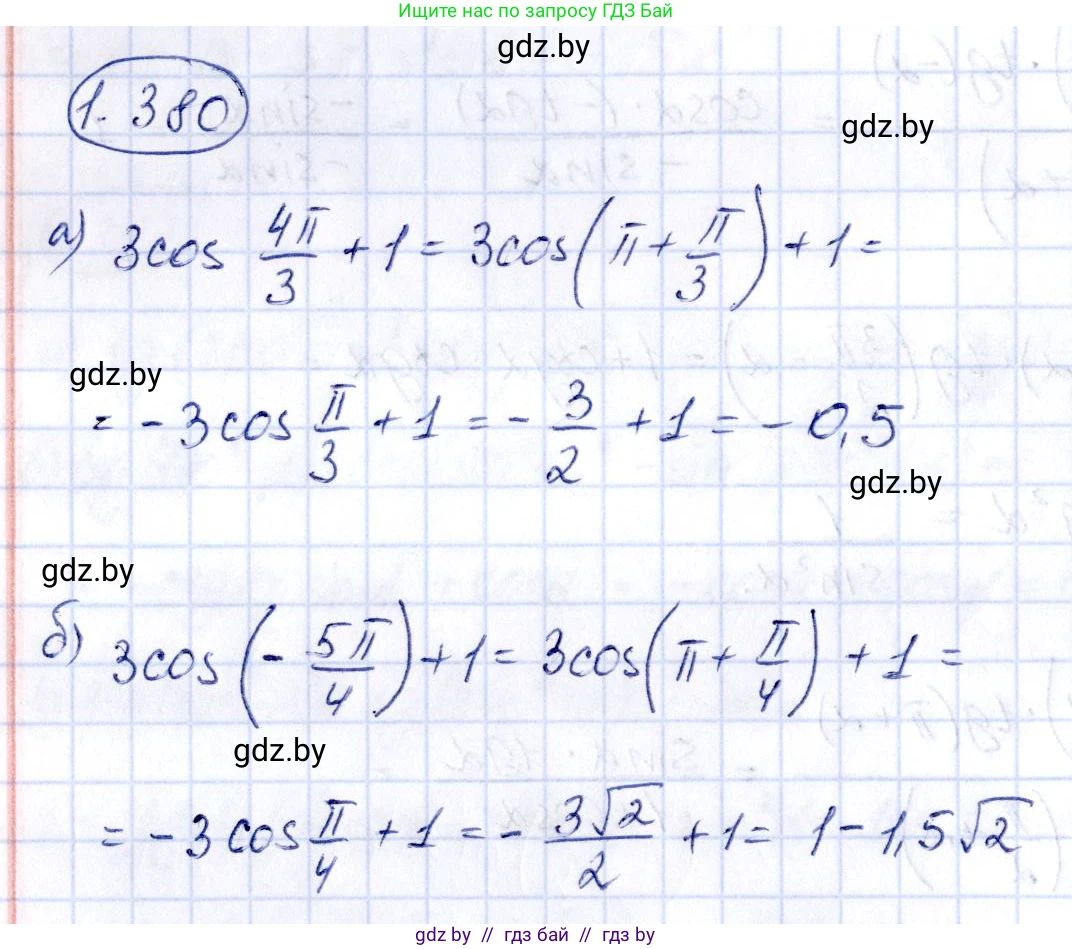 Ищите нас по запросу ГДЗ Бай
gdz.by
1.380
gdz.by
а) 3cos 4π/3 + 1 = 3cos(π + π/3) + 1 =
gdz.by
= -3cos π/3 + 1 = - 3/2 + 1 = -0,5
gdz.by
gdz.by
б) 3cos(- 5π/4) + 1 = 3cos(π + π/4) + 1 =
gdz.by
= -3cos π/4 + 1 = - 3√2/2 + 1 = 1 - 1,5√2
gdz.by // гдз бай // gdz.by